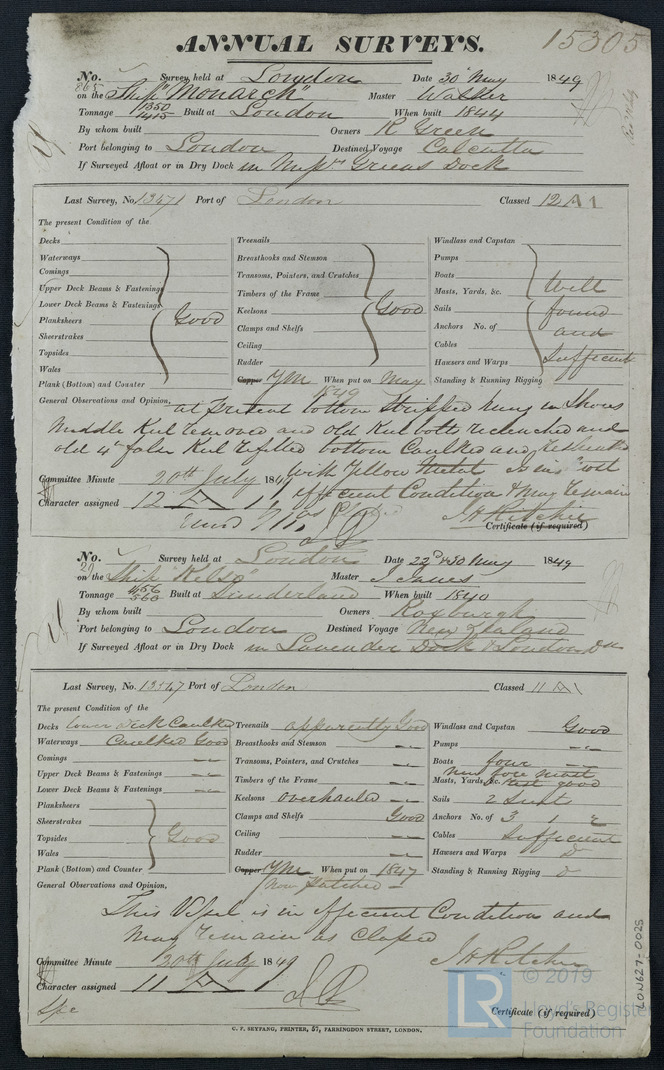 ANNUAL SURVEYS.
15305
No. 865 Survey held at London Date 30 May 1849
on the Ship "Monarch" Master Walker
Tonnage 1350 1415 Built at London When built 1844
By whom built Owners R Green
Port belonging to London Destined Voyage Calcutta
If Surveyed Afloat or in Dry Dock in Messrs Greens Dock
Last Survey, No. 13471 Port of London Classed 12 A1
The present Condition of the
Decks
Waterways
Comings
Upper Deck Beams & Fastenings
Lower Deck Beams & Fastenings
Planksheers
Sheerstrakes
Topsides
Wales
Plank (Bottom) and Counter
Good
Treenails
Breasthooks and Stemson
Transoms, Pointers, and Crutches
Timbers of the Frame
Keelsons
Clamps and Shelfs
Ceiling
Rudder
Good
Copper YM When put on May 1849
Windlass and Capstan
Pumps
Boats
Masts, Yards, &c.
Sails
Anchors No. of
Cables
Hawsers and Warps
Standing & Running Rigging
Well found and Sufficient
General Observations and Opinion, at present bottom stripped hung in Shores
Middle Keel removed and old Keel bolts reclenched and
old 4 in false Keel refitted bottom Caulked and resheathed
with Yellow Metal is in
efficient Condition & may remain
as Classed
Committee Minute 20th July 1849
Character assigned 12 A 1
J H Ritchie
Certificate (if required)
No. 20 Survey held at London Date 22d & 30 May 1849
on the Ship "Kelso" Master J Innes
Tonnage 456 560 Built at Sunderland When built 1840
By whom built Owners Roxburgh
Port belonging to London Destined Voyage New Zealand
If Surveyed Afloat or in Dry Dock in Lavender Dock & London Do
Last Survey, No. 13547 Port of London Classed 11 A1
The present Condition of the
Decks lower deck Caulked
Waterways Caulked Good
Comings
Upper Deck Beams & Fastenings
Lower Deck Beams & Fastenings
Planksheers
Sheerstrakes
Topsides
Wales
Plank (Bottom) and Counter
Good
Treenails apparently Good
Breasthooks and Stemson
Transoms, Pointers, and Crutches
Timbers of the Frame
Keelsons overhauled
Clamps and Shelfs Good
Ceiling
Rudder
Copper YM When put on 1847
Now Patched
Windlass and Capstan Good
Pumps
Boats four
New fore mast
Masts, Yards, &c. rest good
Sails 2 Suits
Anchors No. of 3 1 2
Cables Sufficient
Hawsers and Warps Do
Standing & Running Rigging Do
General Observations and Opinion,
This Vessel is in efficient Condition and
may remain as Classed
J H Ritchie
Committee Minute 20th July 1849
Character assigned 11 A 1
Certificate (if required)
C. F. SEYFANG, PRINTER, 57, FARRINGDON STREET, LONDON.
LON627-0025
LR
© 2019
Lloyd's Register
Foundation